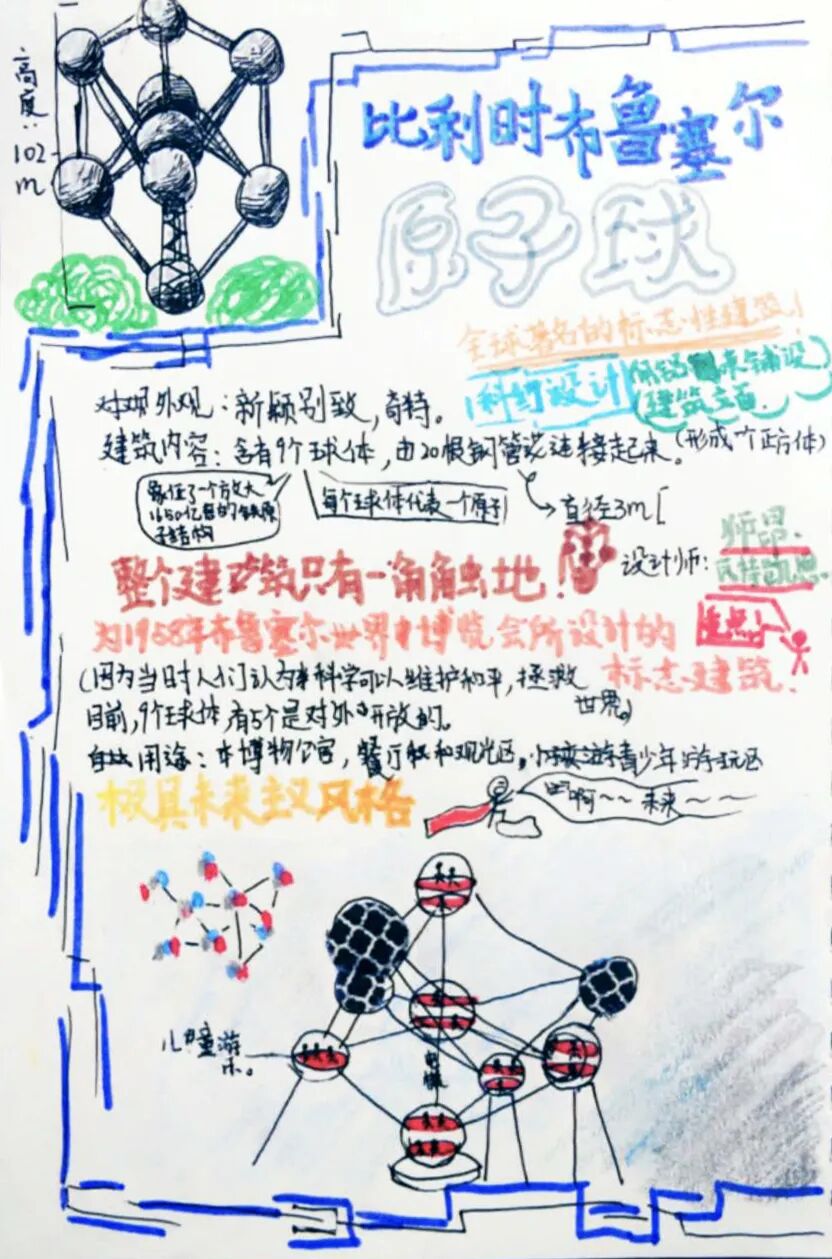 高度:102m
比利时布鲁塞尔
原子球
全球著名的标志性建筑!
科幻设计
铺设
建筑立面
外观:新颖别致,奇特。
建筑内容:含有9个球体,由20根钢管连接起来。(形成一个正方体)
象征了一个放大
1650亿倍的铁原
子结构
每个球体代表一个原子
直径3m
整个建筑只有一角触地!
设计师:
昂·
瓦特凯恩
重点!
为1958年布鲁塞尔世界博览会所设计的
标志建筑.
(因为当时人们认为科学可以维护和平,拯救
世界。)
目前,9个球体,有5个是对外开放的。
用途:博物公馆,餐厅和观光区。青少年游玩区
极具未来主义风格
啊~~未来~~
儿童游
乐。
电梯